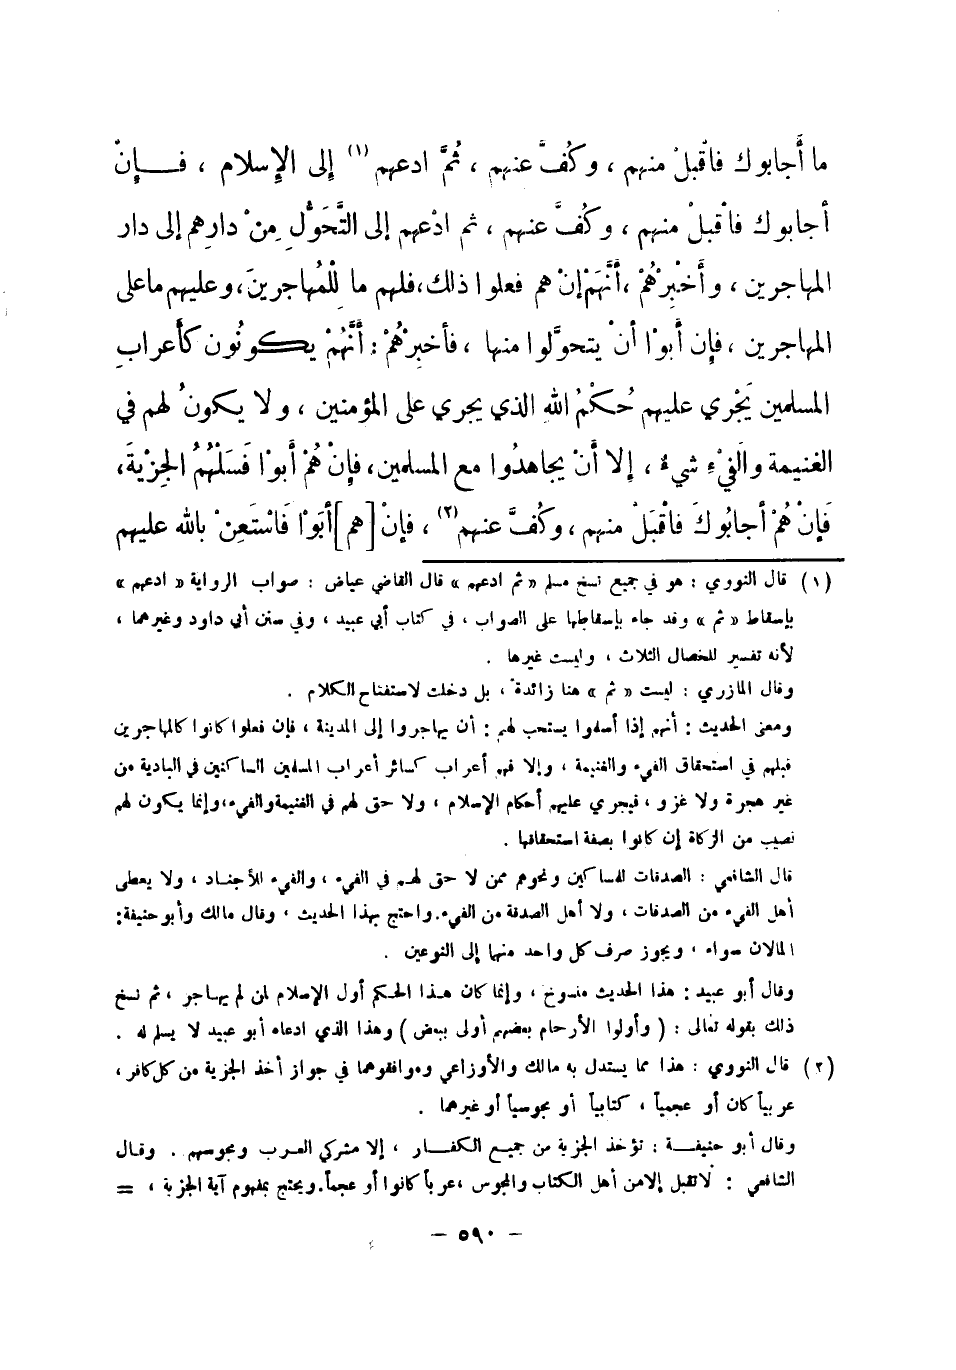 ما أَجابوك فاقْبلْ منهم ، وكُفَّ عنهم ، ثُمَّ ادعهم (١) إلى الإسلام ، فــإنْ
أجابوك فاقْبلْ منهم ، وكُفَّ عنهم ، ثم ادْعهم إلى التَّحَوُّلِ مِنْ دارِهم إلى دار
المهاجرين ، وأَخْبِرْهُمْ ، أَنَّهَمْ إنْ هم فعلوا ذلك ، فلهم ما لِلْمُهاجرينَ ، وعليهم ماعلى
المهاجرين ، فإن أَبوْا أنْ يتحوَّلوا منها ، فأَخبِرْهُمْ : أَنَّهُمْ يكونُون كأَعرابِ
المسلمين يَجْري عليهم حُكْمُ اللهِ الذي يجري على المؤمنين ، ولا يكونُ لهم في
الغنيمة والفَيْءِ شيءٌ ، إلا أَنْ يجاهدُوا مع المسلمين ، فإنْ هُمْ أَبوْا فَسَلْهُمُ الجِزْيةَ ،
فَإنْ هُمْ أجابُوكَ فاقْبَلْ منهم ، وكُفَّ عنهم (٢) ، فإنْ [هم] أَبَوْا فَاسْتَعِنْ بالله عليهم
(١) قال النووي : هو في جميع نسخ مسلم « ثم ادعهم » قال القاضي عياض : صواب الرواية « ادعهم »
بإسقاط « ثم » وقد جاء بإسقاطها على الصواب ، في كتاب أبي عبيد ، وفي سنن أبي داود وغيرهما ،
لأنه تفسير للخصال الثلاث ، وليست غيرها .
وقال المازري : ليست « ثم » هنا زائدة ، بل دخلت لاستفتاح الكلام .
ومعنى الحديث : أنهم إذا أسلموا يستحب لهم : أن يهاجروا إلى المدينة ، فإن فعلوا كانوا كالمهاجرين
قبلهم في استحقاق الفيء والغنيمة ، وإلا فهم أعراب كسائر أعراب المسلمين الساكنين في البادية من
غير هجرة ولا غزو ، فيجري عليهم أحكام الإسلام ، ولا حق لهم في الغنيمة والفيء ، وإنما يكون لهم
نصيب من الزكاة إن كانوا بصفة استحقاقها .
قال الشافعي : الصدقات للمساكين ونحوهم ممن لا حق لهم في الفيء ، والفيء للأجناد ، ولا يعطى
أهل الفيء من الصدقات ، ولا أهل الصدقة من الفيء . واحتج بهذا الحديث ، وقال مالك وأبو حنيفة :
المالان سواء ، ويجوز صرف كل واحد منها إلى النوعين .
وقال أبو عبيد : هذا الحديث منسوخ ، وإنما كان هذا الحكم أول الإسلام لمن لم يهاجر ، ثم نسخ
ذلك بقوله تعالى : ( وأولوا الأرحام بعضهم أولى ببعض ) وهذا الذي ادعاه أبو عبيد لا يسلم له .
(٢) قال النووي : هذا مما يستدل به مالك والأوزاعي وموافقوهما في جواز أخذ الجزية من كل كافر ،
عربياً كان أو عجمياً ، كتابياً أو مجوسياً أو غيرهما .
وقال أبو حنيفة : تؤخذ الجزية من جميع الكفار ، إلا مشركي العرب ومجوسهم . وقال
الشافعي : لاتقبل إلا من أهل الكتاب والمجوس ، عرباً كانوا أو عجماً . ويحتج بمفهوم آية الجزية ، =
– ٥٩٠ –